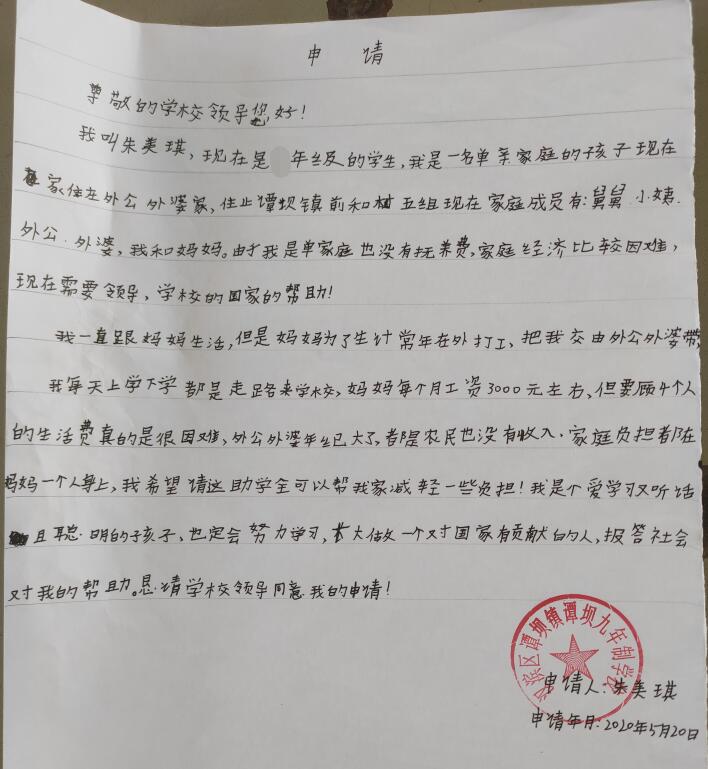 申 请
尊敬的学校领导您好!
我叫朱美琪,现在是年级的学生,我是一名单亲家庭的孩子现在
家住在外公外婆家,住止谭坝镇前和村五组现在家庭成员有:舅舅.小姨.
外公.外婆,我和妈妈。由于我是单家庭也没有抚养费,家庭经济比较因难,
现在需要领导,学校的国家的帮助!
我一直跟妈妈生活,但是妈妈为了生计常年在外打工,把我交由外公外婆带,
我每天上学下学都是走路来学校,妈妈每个月工资3000元左右,但要顾4个人
的生活费真的是很因难,外公外婆年纪已大了,都是农民也没有收入.家庭负担都在
妈妈一个人身上,我希望请这助学金可以帮我家减轻一些负担!我是个爱学习又听话
且聪明的孩子,也定会努力学习,长大做一个对国家有贡献的人,报答社会
对我的帮助。恳请学校领导同意我的申请!
区谭坝镇谭坝九年制学校
申请人:朱美琪
申请年月:2020年5月20日